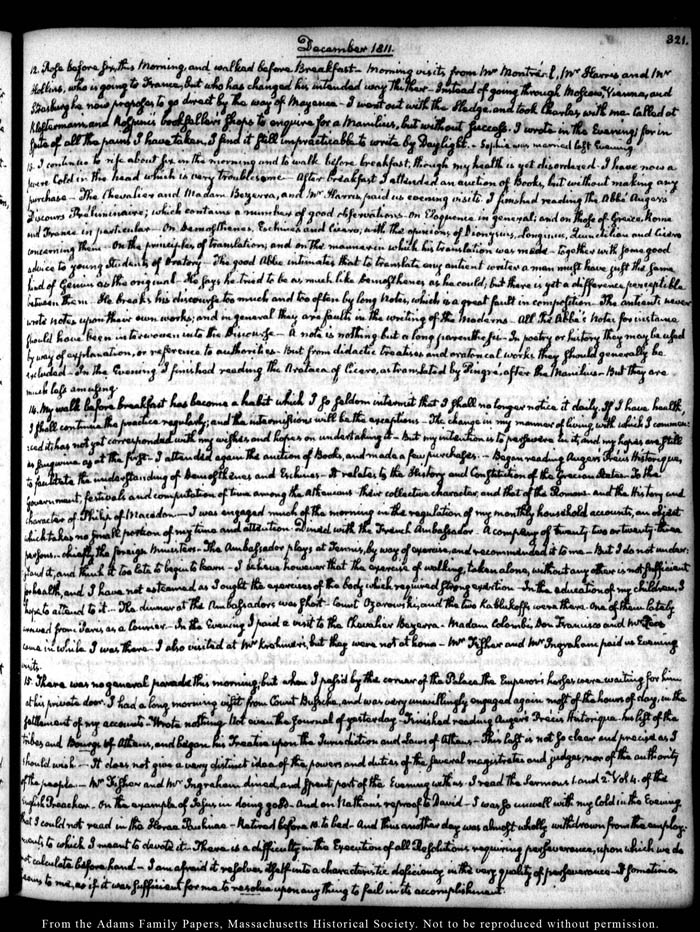 December 1811.
321.
12. Rose before six, this Morning, and walked before Breakfast – Morning visits from Mr Montréal, Mr Harris and Mr
Hollins, who is going to France, but who has changed his intended way thither – Instead of going through Moscow, Vienna, and
Strasburg he now proposes to go direct by the way of Mayence – I went out with the Sledge and took Charles with me. Called at
Klostermann and bookseller's shops to enquire for a Manilius, but without success. I wrote in the Evening; for in
spite of all the pains I have taken, I find it still impracticable to write by Daylight. – was married last Evening.
13. I continue to rise about six in the morning and to walk before breakfast, though my health is yet disordered. I have now a
severe Cold in the head which is very troublesome – After breakfast I attended an auction of Books, but without making any
purchase – The Chevalier and Madam Bezerra, and Mr Harris, paid us evening visits. I finished reading the Abbé Auger's
Discours Préliminaire; which contains a number of good observations – on Eloquence in general; and on those of Greece, Rome
and France in particular – On Demosthenes, Eschines and Cicero; with the opinions of Dionysius, Longinus, Quinctilian and Cicero
concerning them – On the principles of translation; and on the manner in which his translation was made – together with some good
advice to young Students of Oratory – The good Abbé intimates that to translate any antient writer a man must have just the same
kind of Genius as the original – He says he tried to be as much like Demosthenes as he could; but there is yet a difference perceptible
between them – He breaks his discourse too much and too often by long Notes, which is a great fault in composition – The antients never
wrote notes upon their own works; and in general they are faults in the writing of the Moderns – All the Abbé's Notes for instance
should have been interwoven into the Discourse – A note is nothing but a long parenthesis – In poetry or history they may be used
by way of explanation, or reference to authorities – But from didactic treatises and oratorical works they should generally be
excluded – In the Evening I finished reading the Aratea of Cicero, as translated by Pingré, after the Manilius – But they are
much less amusing.
14. My walk before breakfast has become a habit which I so seldom intermit that I shall no longer notice it daily. If I have health,
I shall continue the practice regularly; and the intermissions will be the exceptions – The change in my manner of living with which I commen-
ced it has not yet corresponded with my wishes and hopes on undertaking it – But my intention is to persevere in it; and my hopes are still
as sanguine as at the first – I attended again the auction of Books, and made a few purchases. – Began reading Auger's Précis Historique,
to facilitate the understanding of Demosthenes and Eschines – It relates to the History and Constitution of the Grecian States – To the
government, festivals and computation of time among the Athenians – their collective character, and that of the Romans – and the History and
character of Philip of Macedon – I was engaged much of the morning in the regulation of my monthly household accounts, an object
which takes no small portion of my time and attention – Dined with the French Ambassador. A company of twenty two or twenty three
persons – chiefly the foreign Ministers – The Ambassador plays at Tennis, by way of exercise, and recommended it to me – But I do not under-
stand it, and think it too late to begin to learn – I believe however that the exercise of walking, taken alone, without any other is not sufficient
for health, and I have not esteemed as I ought the exercises of the body which required strong exertion – In the education of my children, I
hope to attend to it – The dinner at the Ambassadors was short – Count Ozarowski, and the two Kabloukoffs were there – One of them lately
arrived from Paris as a Courier – In the Evening I paid a visit to the Chevalier Bezerra – Madam Colombi, Don Francisco and Mr
came in while I was there – I also visited at Mr Krehmer's, but they were not at home – Mr Fisher and Mr Ingraham paid us Evening
visits.
15. There was no general parade this morning; but when I pass'd by the corner of the Palace the Emperor's horses were waiting for him
at his private door. I had a long morning visit from Count Bussche, and was very unwillingly engaged again most of the hours of day, in the
settlement of my accounts – Wrote nothing. Not even the Journal of yesterday – Finished reading Auger's Précis Historique – his list of the
tribes and Bourgs of Athens, and began his Treatise upon the Jurisdiction and Laws of Athens – This last is not so clear and precise as I
should wish – It does not give a very distinct idea of the powers and duties of the several magistrates and judges; nor of the authority
of the people – Mr Fisher and Mr Ingraham dined, and spent part of the Evening with us. I read the Sermons 1. and 2. Vol. 4. of the
English Preacher – On the example of Jesus in doing good – And on Nathan's reproof to David – I was so unwell with my Cold in the Evening
that I could not read in the Horae Paulinae – Retired before 10. to bed – And thus another day was almost wholly withdrawn from the employ-
ments to which I meant to devote it – There is a difficulty in the Execution of all Resolutions requiring perseverance, upon which we do
not calculate beforehand – I am afraid it resolves itself into a characteristic deficiency in the very quality of perseverance – It sometimes
seems to me, as if it was sufficient for me to resolve upon any thing to fail in its accomplishment.
From the Adams Family Papers, Massachusetts Historical Society. Not to be reproduced without permission.